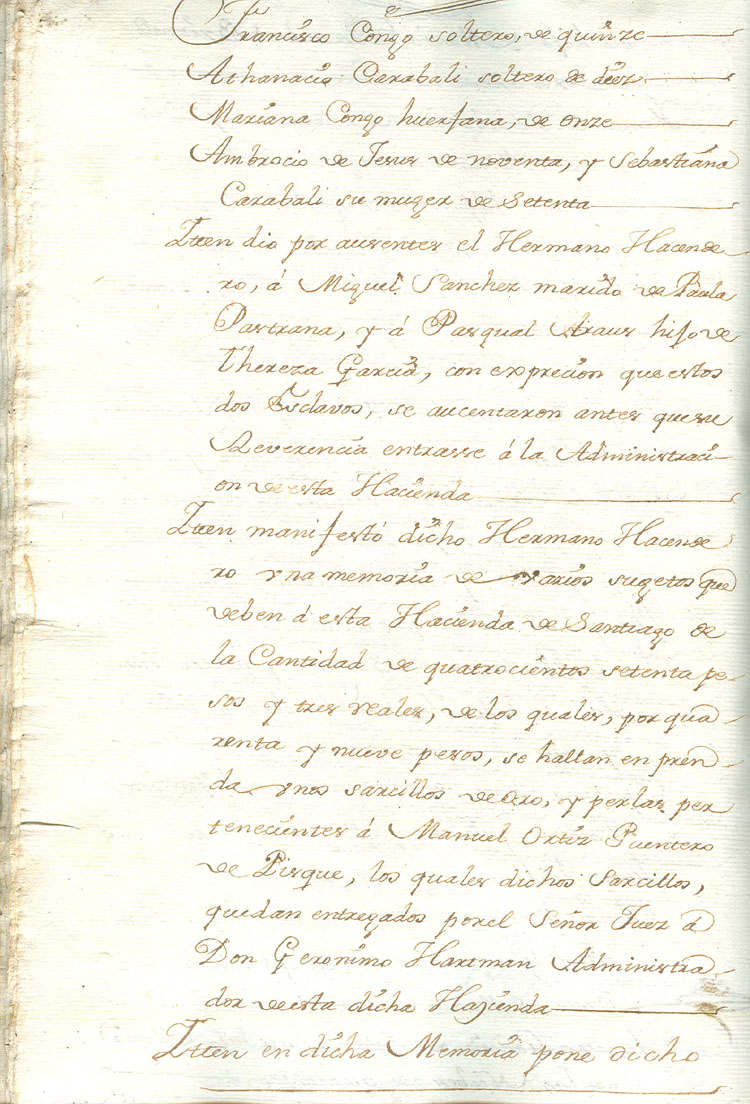 Francisco Congo soltero, de quinze
Athanacia Carabali soltero de diez
Mariana Congo huerfana, de onze
Ambrocio de Jesus de noventa, y Sebastiana
Carabali su muger de setenta
Itten dio por ausentes el Hermano Hacende
ro, á Miguel Sanchez marido de Paula
Pastrana, y á Pasqual Araus hijo de
Thereza Garcia, con expreción que estos
dos Esclavos, se aucentaron antes que su
Reverencia entrasse á la Administraci-
on de esta Hacienda
Itten manifestó dicho Hermano Hacende
ro vna memoria de varios sugetos que
deben á esta Hacienda de Santiago de
la Cantidad de quatrocientos setenta pe-
sos y tres reales, de los quales, por qua-
renta y nueve pesos, se hallan en pren-
da vnos sarcillos de oro, y perlas per
tenecientes á Manuel Ortiz Puentero
de Pisque, los quales dichos Sarcillos,
quedan entregados por el Señor Juez á
Don Geronimo Hartman Administra-
dor de esta dicha Hazienda
Itten en dicha Memoria pone dicho